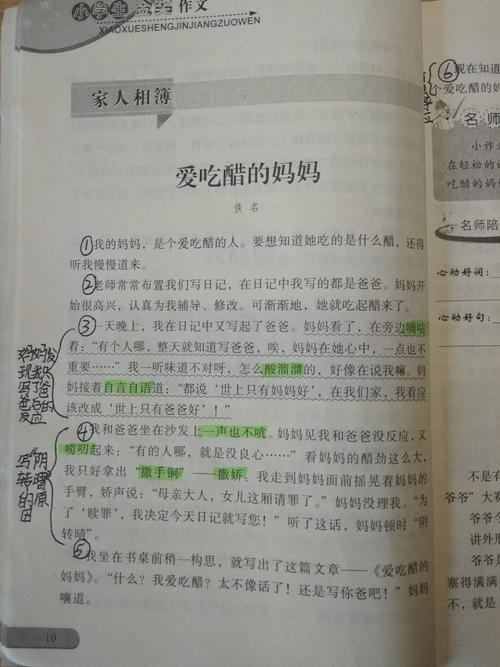 小学生 作文
XIAOXUESHENGJINJIANGZUOWEN
家人相簿
爱吃醋的妈妈
佚 名
①我的妈妈，是个爱吃醋的人。要想知道她吃的是什么醋，还得
听我慢慢道来。
②老师常常布置我们写日记，在日记中我写的都是爸爸。妈妈开
始很高兴，认真为我辅导、修改。可渐渐地，她就吃起醋来了。
③一天晚上，我在日记中又写起了爸爸。妈妈看了，在旁边嘀咕
着：“有个人哪，整天就知道写爸爸，唉，妈妈在她心中，一点也不
重要……”我一听味道不对呀，怎么酸溜溜的，好像在说我嘛。妈
妈接着自言自语道：“都说‘世上只有妈妈好’，在我们家，我看应
该改成‘世上只有爸爸好’！”
④我和爸爸坐在沙发上一声也不吭。妈妈见我和爸爸没反应，又
唠叨起来：“有的人哪，就是没良心……”看妈妈的醋劲这么大，
我只好拿出“撒手锏”——撒娇。我走到妈妈面前摇晃着妈妈的
手臂，娇声说：“母亲大人，女儿这厢请罪了。”妈妈没理我。“为
了‘赎罪’，我决定今天日记就写您！”听了这话，妈妈顿时“阴
转晴”。
⑤我坐在书桌前稍一构思，就写出了这篇文章——《爱吃醋的
妈妈》。“什么？我爱吃醋？太不像话了！还是写你爸吧！”妈妈
嚷道。
10
⑥现在知道
个爱吃醋的妈
名 师
小作
在轻松的
吃醋的妈
名师陪
心动好词：
心动好句：
不是
爷爷”大赛
爷爷
讲外形
塞得满满
不，就是